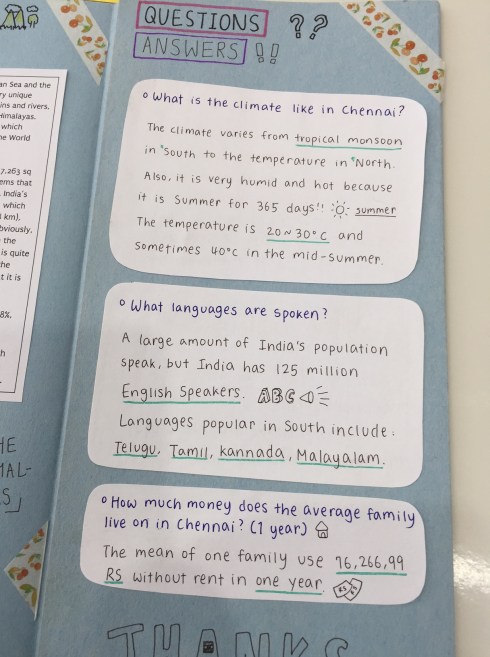 QUESTIONS ??
ANSWERS !!
an Sea and the
ry unique
ins and rivers.
Himalayas.
which
he World
7,263 sq
ems that
India's
which
km).
bviously,
the
is quite
he
t it is
8%.
What is the climate like in Chennai?
The climate varies from tropical monsoon
in "South to the temperature in "North.
Also, it is very humid and hot because
it is Summer for 365 days!! summer
The temperature is 20~30°C and
sometimes 40°C in the mid-summer.
What languages are spoken?
A large amount of India's population
speak, but India has 125 million
English Speakers. ABC
Languages popular in South include:
Telugu, Tamil, Kannada, Malayalam.
How much money does the average family
live on in Chennai? (1 year)
The mean of one family use 76,266,99
RS without rent in one year. RS
THANKS